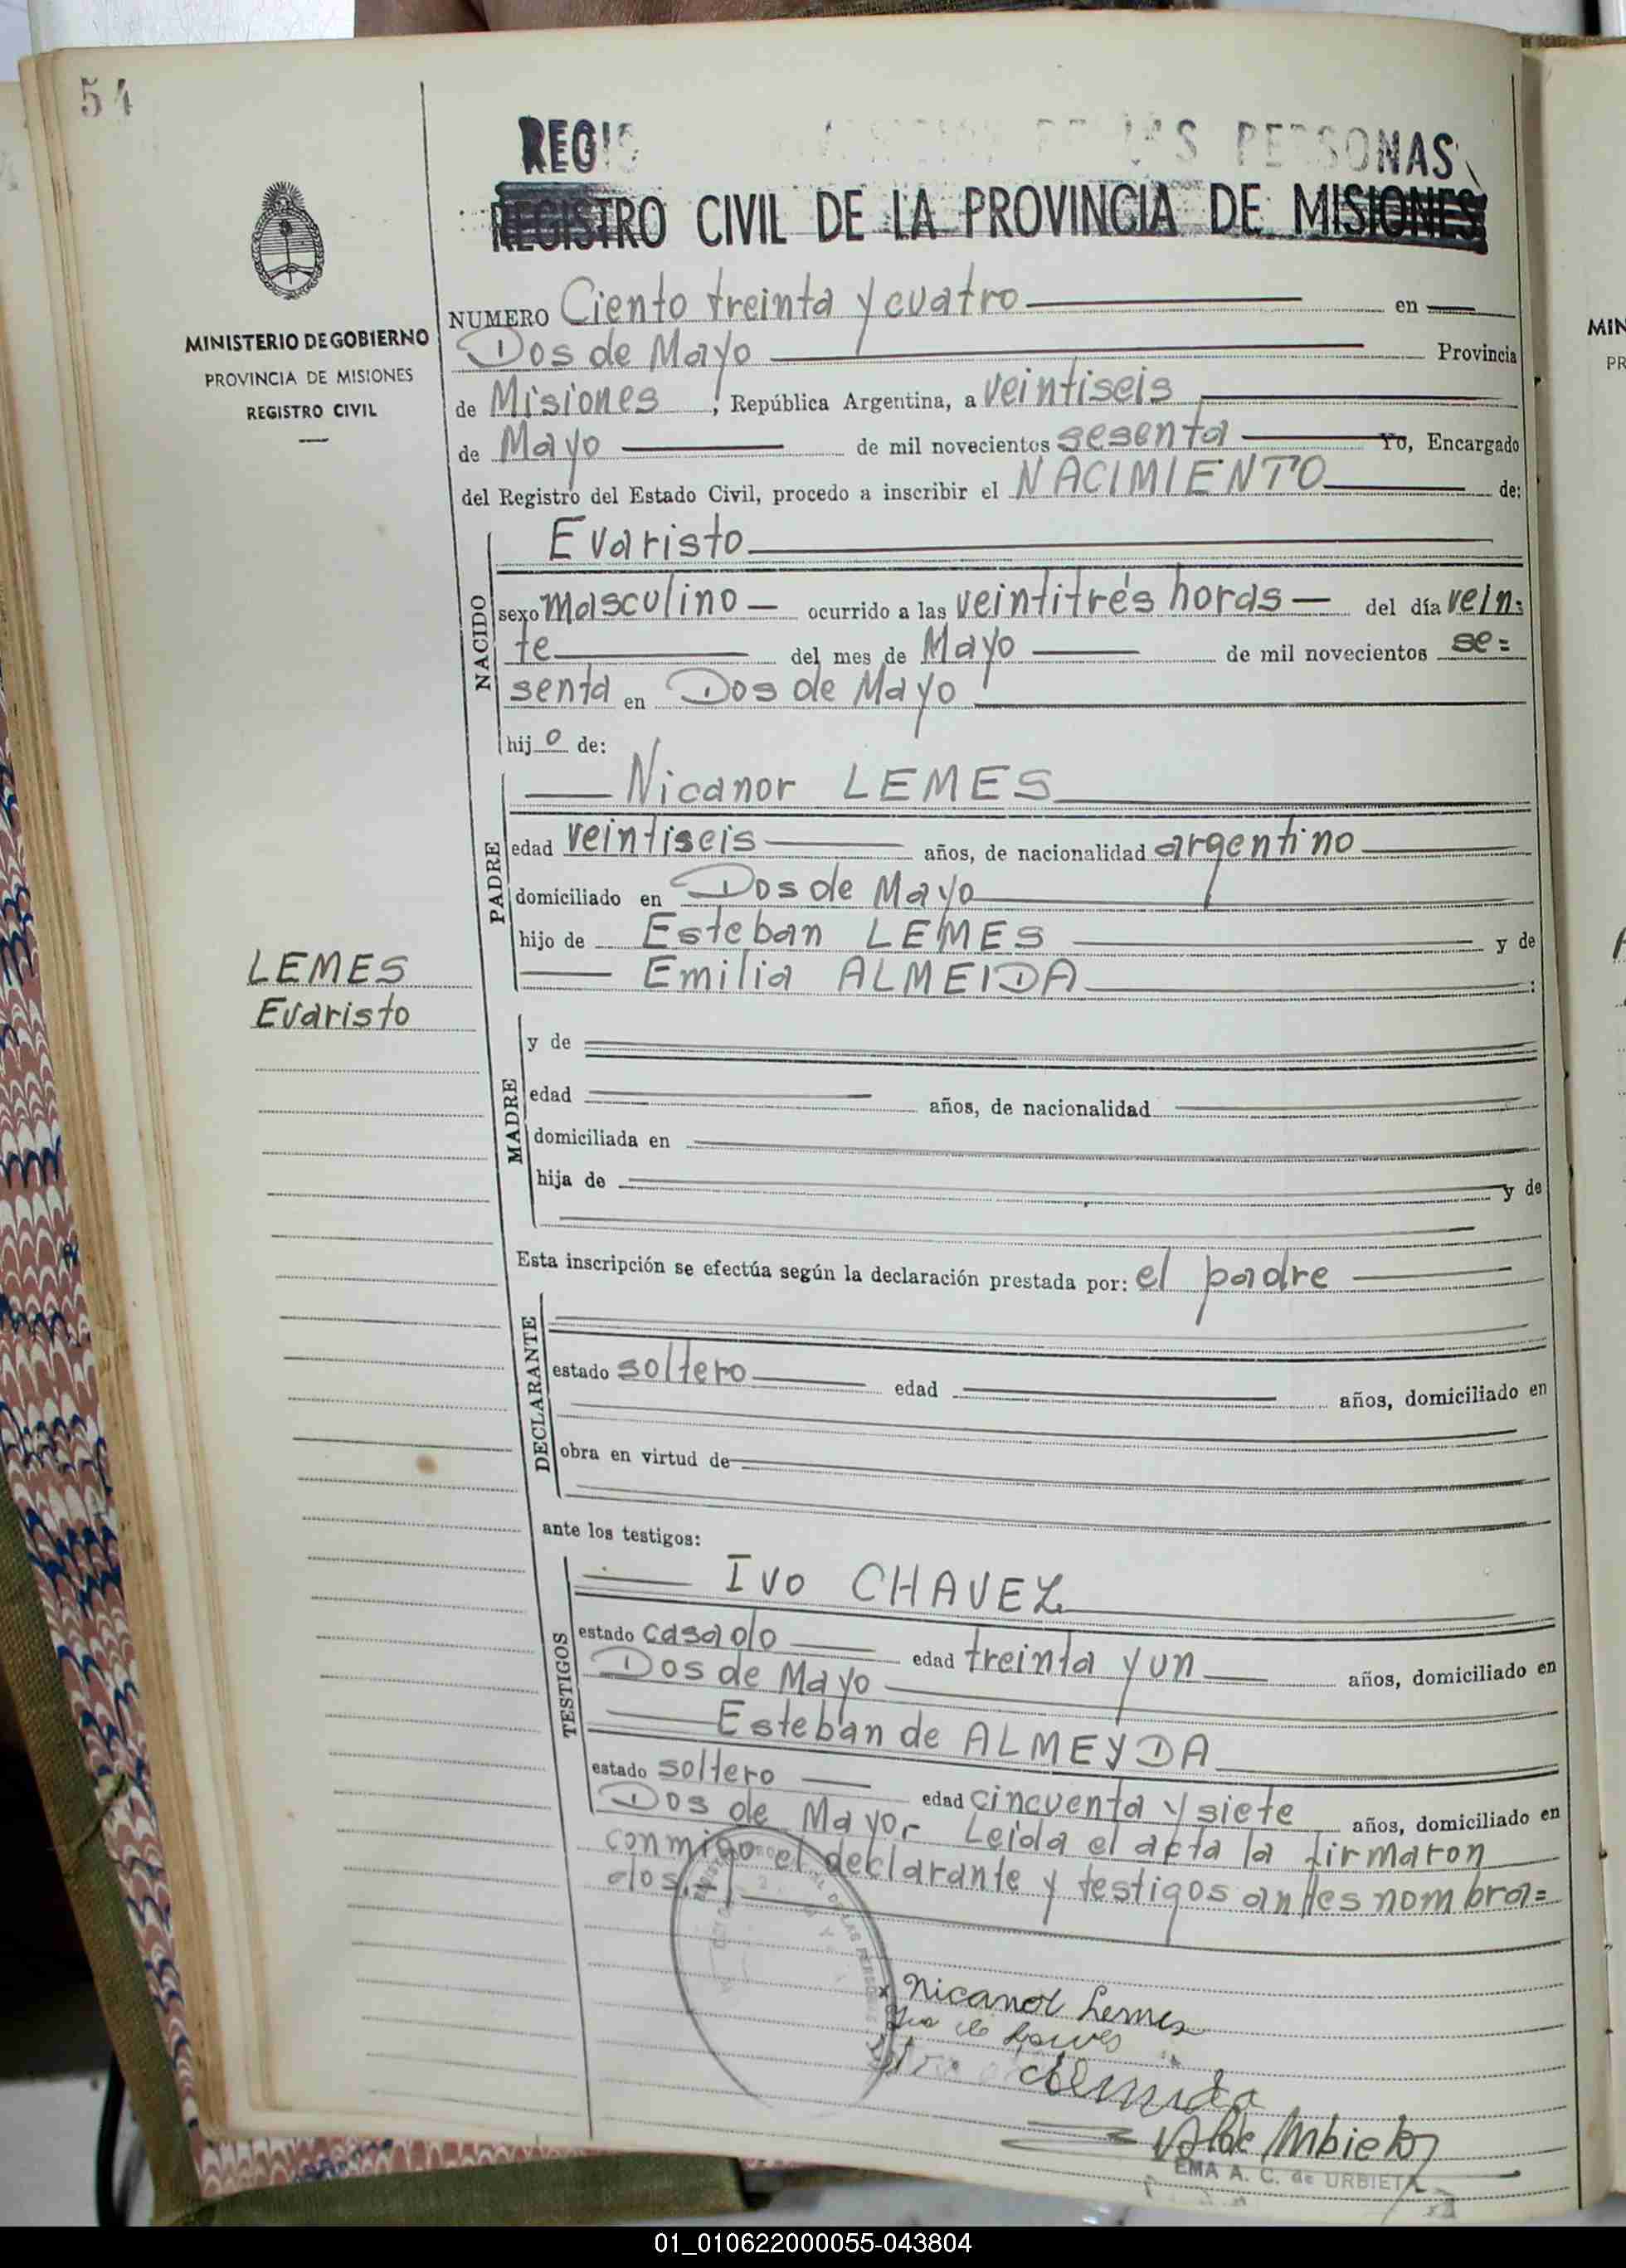 54
REGIS DE LAS PERSONAS
REGISTRO CIVIL DE LA PROVINCIA DE MISIONES
MINISTERIO DE GOBIERNO
PROVINCIA DE MISIONES
REGISTRO CIVIL
NUMERO Ciento treinta y cuatro en
Dos de Mayo Provincia
de Misiones, República Argentina, a veintiseis
de Mayo de mil novecientos sesenta Yo, Encargado
del Registro del Estado Civil, procedo a inscribir el NACIMIENTO de:
NACIDO
Evaristo
sexo masculino ocurrido a las veintitrés horas del día vein=
te del mes de Mayo de mil novecientos se=
senta en Dos de Mayo
hijo de:
PADRE
Nicanor LEMES
edad veintiseis años, de nacionalidad argentino
domiciliado en Dos de Mayo
hijo de Esteban LEMES y de
Emilia ALMEIDA :
LEMES
Evaristo
MADRE
y de
edad años, de nacionalidad
domiciliada en
hija de y de
Esta inscripción se efectúa según la declaración prestada por: el padre
DECLARANTE
estado soltero edad años, domiciliado en
obra en virtud de
ante los testigos:
TESTIGOS
Ivo CHAVEZ
estado casado edad treinta y un años, domiciliado en
Dos de Mayo
Esteban de ALMEYDA
estado soltero edad cincuenta y siete años, domiciliado en
Dos de Mayo.- Leida el acta la firmaron
conmigo el declarante y testigos antes nombra=
dos.-
x Nicanor Lemes
EMA A. C. de URBIETA
MIN
PR
01_010622000055-043804